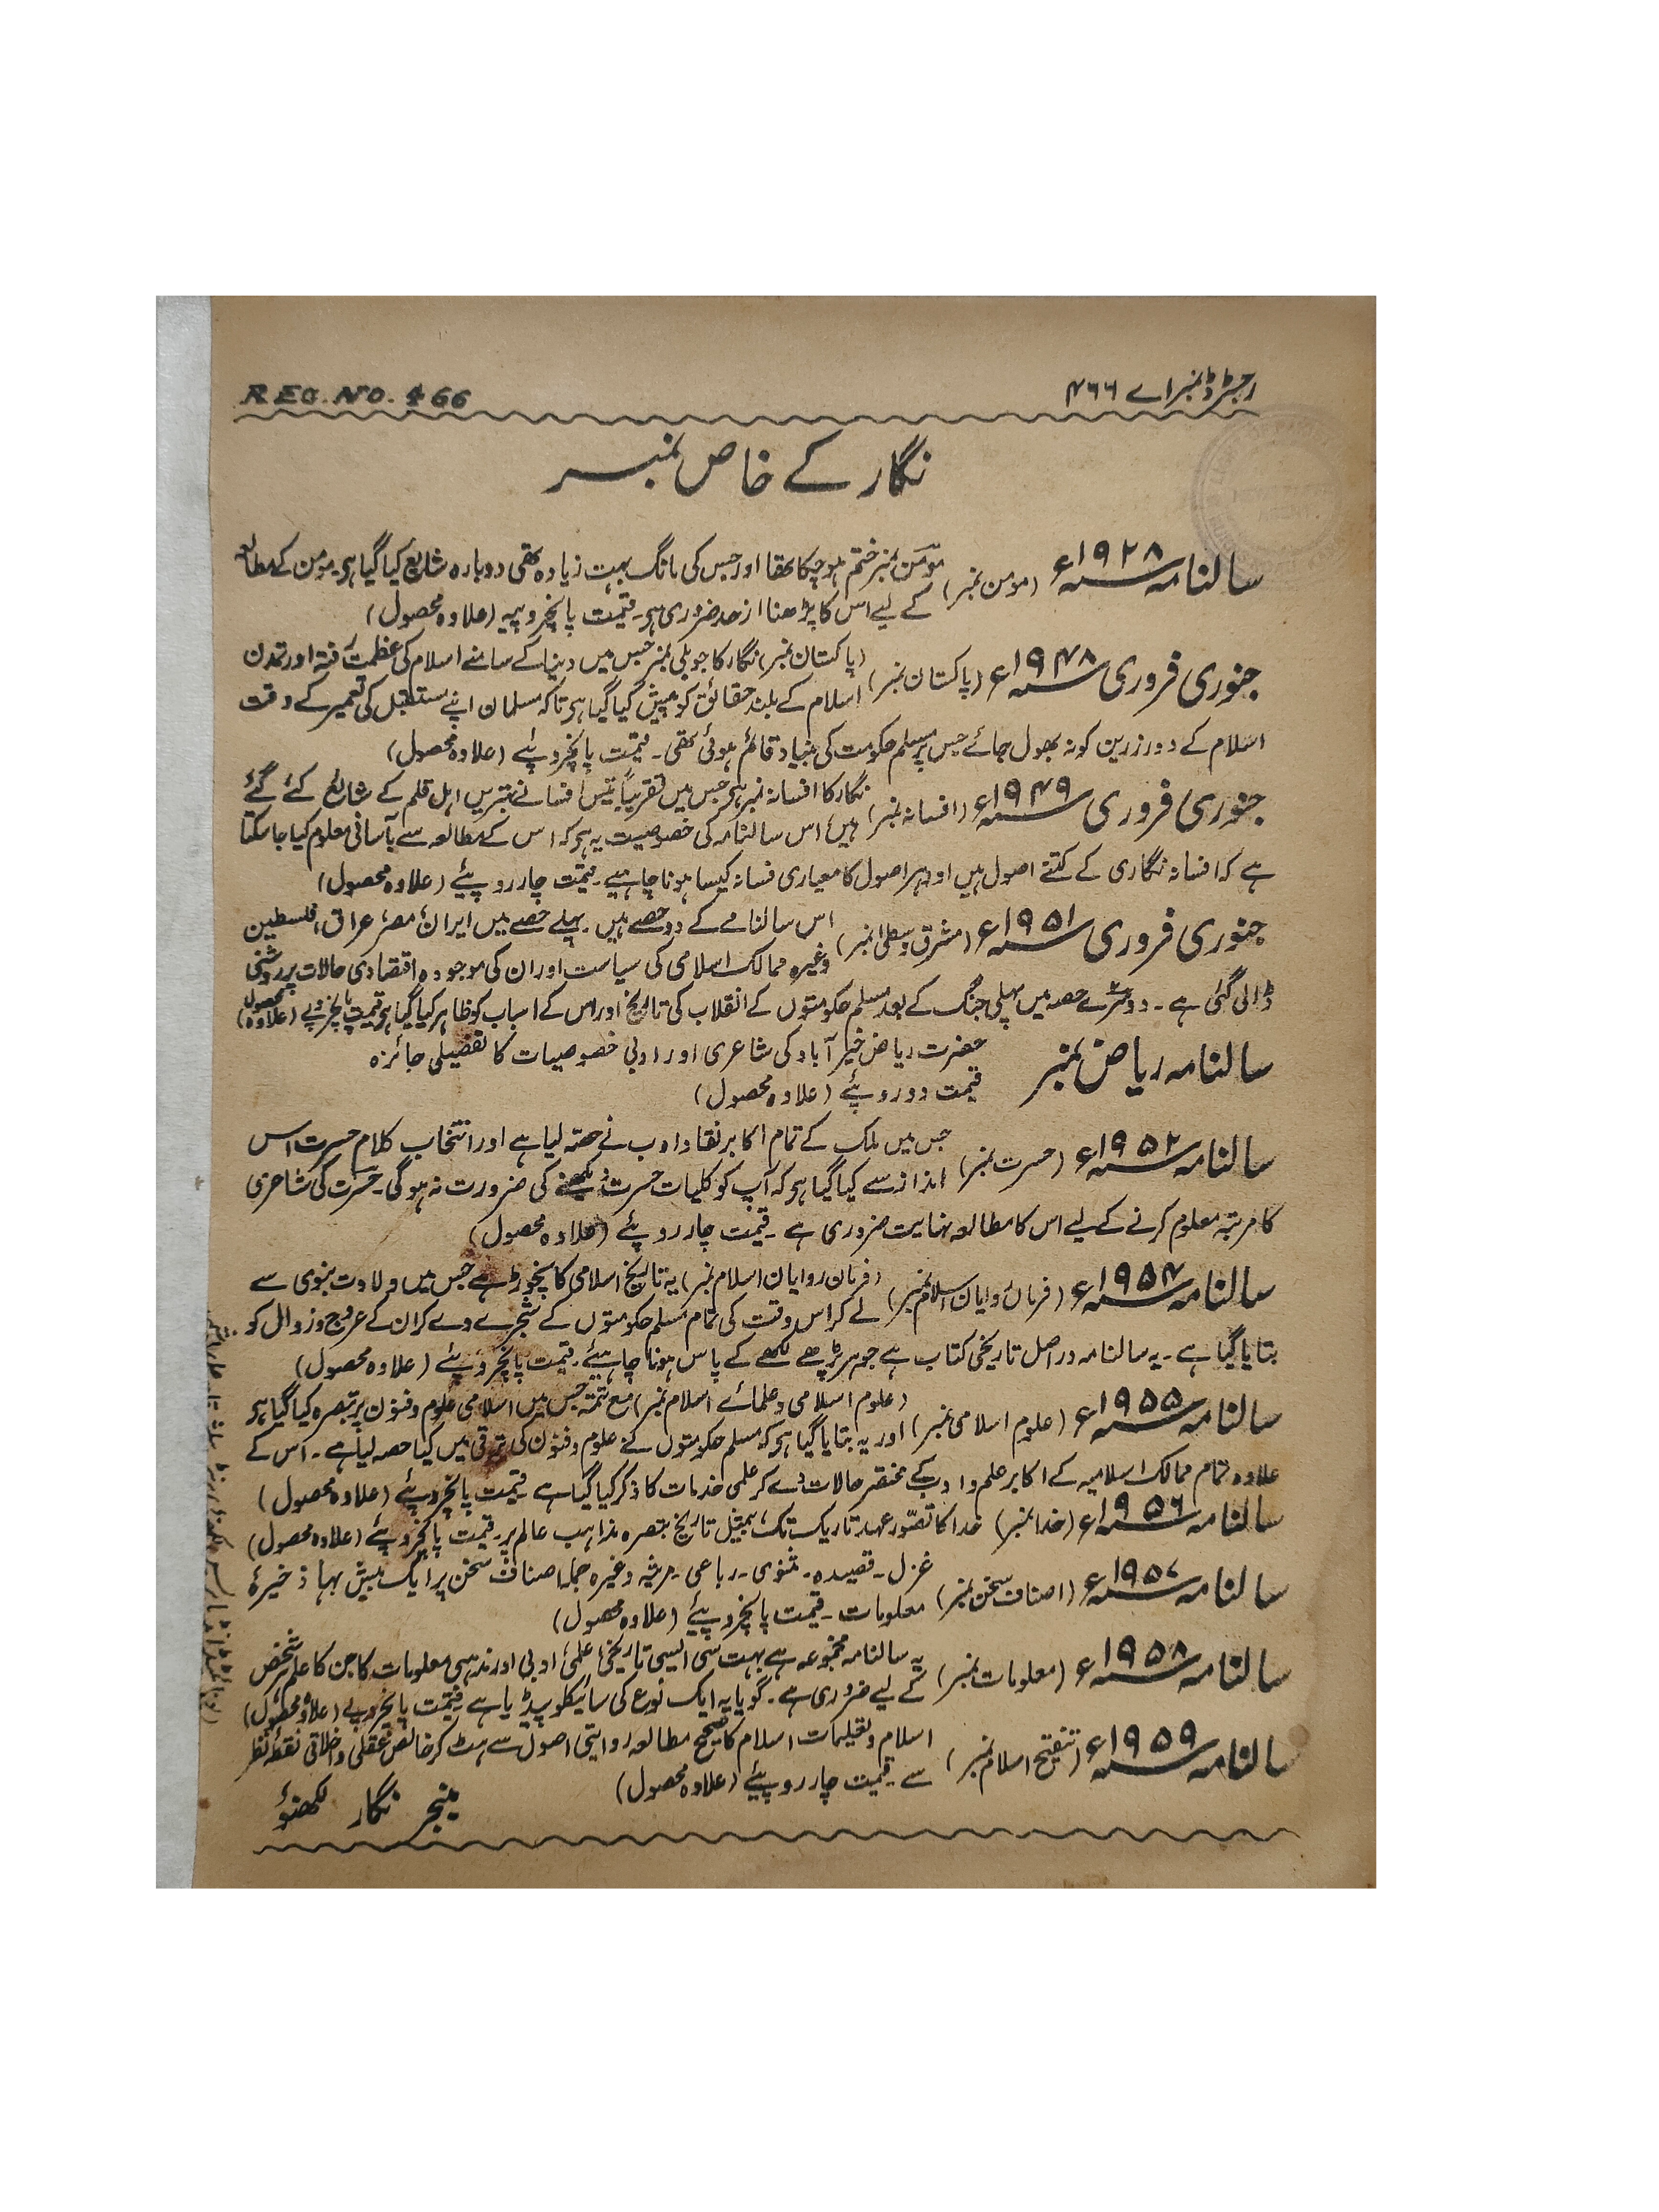 رجسٹرڈ نمبر اے ۴۶۶
REG. NO. 466
نگار کے خاص نمبر
سالنامہ ۱۹۲۸ء (مومن نمبر) مومن نمبر ختم ہو چکا تھا اور جس کی مانگ بہت زیادہ تھی دوبارہ شایع کیا گیا ہی۔ مومن کے مطالعہ
کے لیے اس کا پڑھنا از حد ضروری ہی۔ قیمت پانچروپیہ (علاوہ محصول)
جنوری فروری ۱۹۴۸ء (پاکستان نمبر) (پاکستان نمبر) نگار کا جوبلی نمبر جس میں دنیا کے سامنے اسلام کی عظمت رفتہ اور تمدن
اسلام کے بلند حقائق کو پیش کیا گیا ہی تاکہ مسلمان اپنے مستقبل کی تعمیر کے وقت
اسلام کے دور زرین کو نہ بھول جائے جس پر مسلم حکومت کی بنیاد قائم ہوئی تھی۔ قیمت پانچروپئے (علاوہ محصول)
جنوری فروری ۱۹۴۹ء (افسانہ نمبر) نگار کا افسانہ نمبر ہی جس میں تقریباً تیس افسانے بہتریں اہل قلم کے شائع کئے گئے
ہیں، اس سالنامہ کی خصوصیت یہ ہی کہ اس کے مطالعہ سے بآسانی معلوم کیا جا سکتا
ہے کہ افسانہ نگاری کے کتنے اصول ہیں اور ہر اصول کا معیاری فسانہ کیسا ہونا چاہیے۔ قیمت چار روپئے (علاوہ محصول)
جنوری فروری ۱۹۵۱ء (مشرق وسطیٰ نمبر) اس سالنامے کے دو حصے ہیں۔ پہلے حصے میں ایران، مصر، عراق، فلسطین
وغیرہ ممالک اسلامی کی سیاست اور ان کی موجودہ اقتصادی حالات پر روشنی
ڈالی گئی ہے۔ دوسرے حصہ میں پہلی جنگ کے بعد مسلم حکومتوں کے انقلاب کی تاریخ اور اس کے اسباب کو ظاہر کیا گیا ہی قیمت پانچروپے (علاوہ محصول)
سالنامہ ریاض نمبر حضرت ریاض خیرآباد کی شاعری اور ادبی خصوصیات کا تفصیلی جائزہ
قیمت دو روپئے (علاوہ محصول)
سالنامہ ۱۹۵۲ء (حسرت نمبر) جس میں ملک کے تمام اکابر نقاد ادب نے حصہ لیا ہے اور انتخاب کلام حسرت اس
انداز سے کیا گیا ہی کہ آپ کو کلیات حسرت دیکھنے کی ضرورت نہ ہوگی۔ حسرت کی شاعری
کا مرتبہ معلوم کرنے کے لیے اس کا مطالعہ نہایت ضروری ہے۔ قیمت چار روپئے (علاوہ محصول)
سالنامہ ۱۹۵۴ء (فرمان روایان اسلام نمبر) (فرمان روایان اسلام نمبر) یہ تاریخ اسلامی کا نچوڑ ہے جس میں ولادت نبوی سے
لے کر اس وقت کی تمام مسلم حکومتوں کے شجرے دے کر ان کے عروج و زوال کو
بتایا گیا ہے۔ یہ سالنامہ دراصل تاریخی کتاب ہے جو ہر پڑھے لکھے کے پاس ہونا چاہیئے۔ قیمت پانچروپئے (علاوہ محصول)
سالنامہ ۱۹۵۵ء (علوم اسلامی نمبر) (علوم اسلامی و علمائے اسلام نمبر) مع تتمہ جس میں اسلامی علوم و فنون پر تبصرہ کیا گیا ہی
اور یہ بتایا گیا ہی کہ مسلم حکومتوں نے علوم و فنون کی ترقی میں کیا حصہ لیا ہے۔ اس کے
علاوہ تمام ممالک اسلامیہ کے اکابر علم و ادب کے مختصر حالات دے کر علمی خدمات کا ذکر کیا گیا ہے قیمت پانچروپئے (علاوہ محصول)
سالنامہ ۱۹۵۶ء (خدا نمبر) خدا کا تصور عہد تاریک تک، بمثیل تاریخ تبصرہ مذاہب عالم پر۔ قیمت پانچروپئے (علاوہ محصول)
سالنامہ ۱۹۵۷ء (اصناف سخن نمبر) غزل۔ قصیدہ۔ مثنوی۔ رباعی۔ مرثیہ وغیرہ جملہ اصناف سخن پر ایک بیش بہا ذخیرۂ
معلومات۔ قیمت پانچروپئے (علاوہ محصول)
سالنامہ ۱۹۵۸ء (معلومات نمبر) یہ سالنامہ مجموعہ ہے بہت سی ایسی تاریخی، علمی، ادبی اور مذہبی معلومات کا جن کا علم ہر شخص
کے لیے ضروری ہے۔ گویا یہ ایک نوع کی سائیکلوپیڈیا ہے قیمت پانچروپے (علاوہ محصول)
سالنامہ ۱۹۵۹ء (تنقیح اسلام نمبر) اسلام و تعلیمات اسلام کا صحیح مطالعہ روایتی اصول سے ہٹ کر خالص عقلی و اخلاقی نقطۂ نظر
سے۔ قیمت چار روپئے (علاوہ محصول)
منیجر نگار لکھنؤ